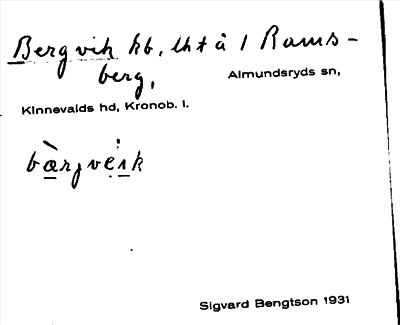 Bergvik hb, lht å 1 Rams-
berg,
Almundsryds sn,
Kinnevalds hd, Kronob. l.
Sigvard Bengtson 1931